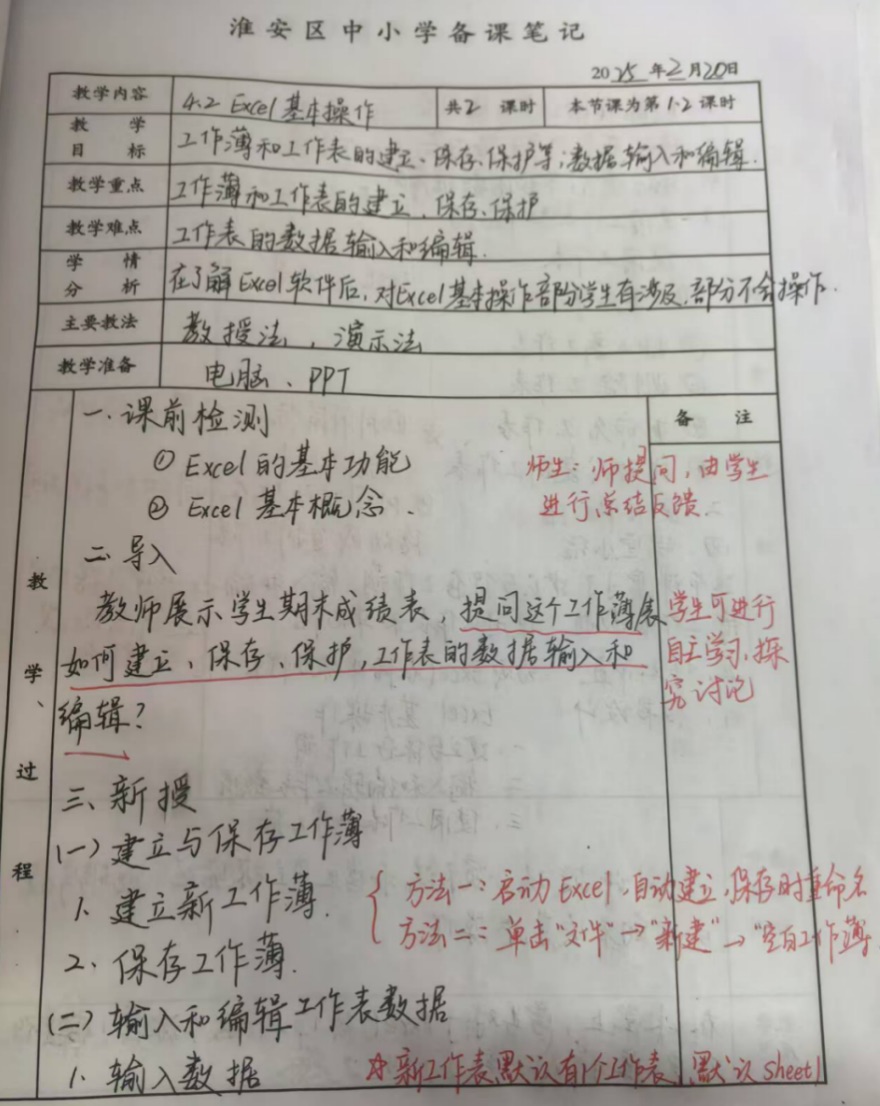 淮安区中小学备课笔记
2025年2月20日
教学内容 4.2 Excel基本操作 共2课时 本节课为第1、2课时
教学目标 工作薄和工作表的建立、保存、保护等;数据输入和编辑.
教学重点 工作薄和工作表的建立、保存、保护
教学难点 工作表的数据输入和编辑.
学情分析 在了解Excel软件后,对Excel基本操作部份学生有涉及,部分不会操作.
主要教法 教授法,演示法
教学准备 电脑、PPT
教学、过程
备注
一.课前检测
① Excel的基本功能
② Excel基本概念.
师生:师提问,由学生
进行总结反馈.
二.导入
教师展示学生期末成绩表,提问这个工作薄
如何建立、保存、保护,工作表的数据输入和
编辑?
学生可进行
自主学习、探
究讨论
三、新授
(一)建立与保存工作薄
1、建立新工作薄.
方法一:启动Excel,自动建立,保存时重命名
方法二:单击"文件"→"新建"→"空白工作薄
2、保存工作薄.
(二)输入和编辑工作表数据
1、输入数据
☆新工作表默认有1个工作表,默认Sheet1